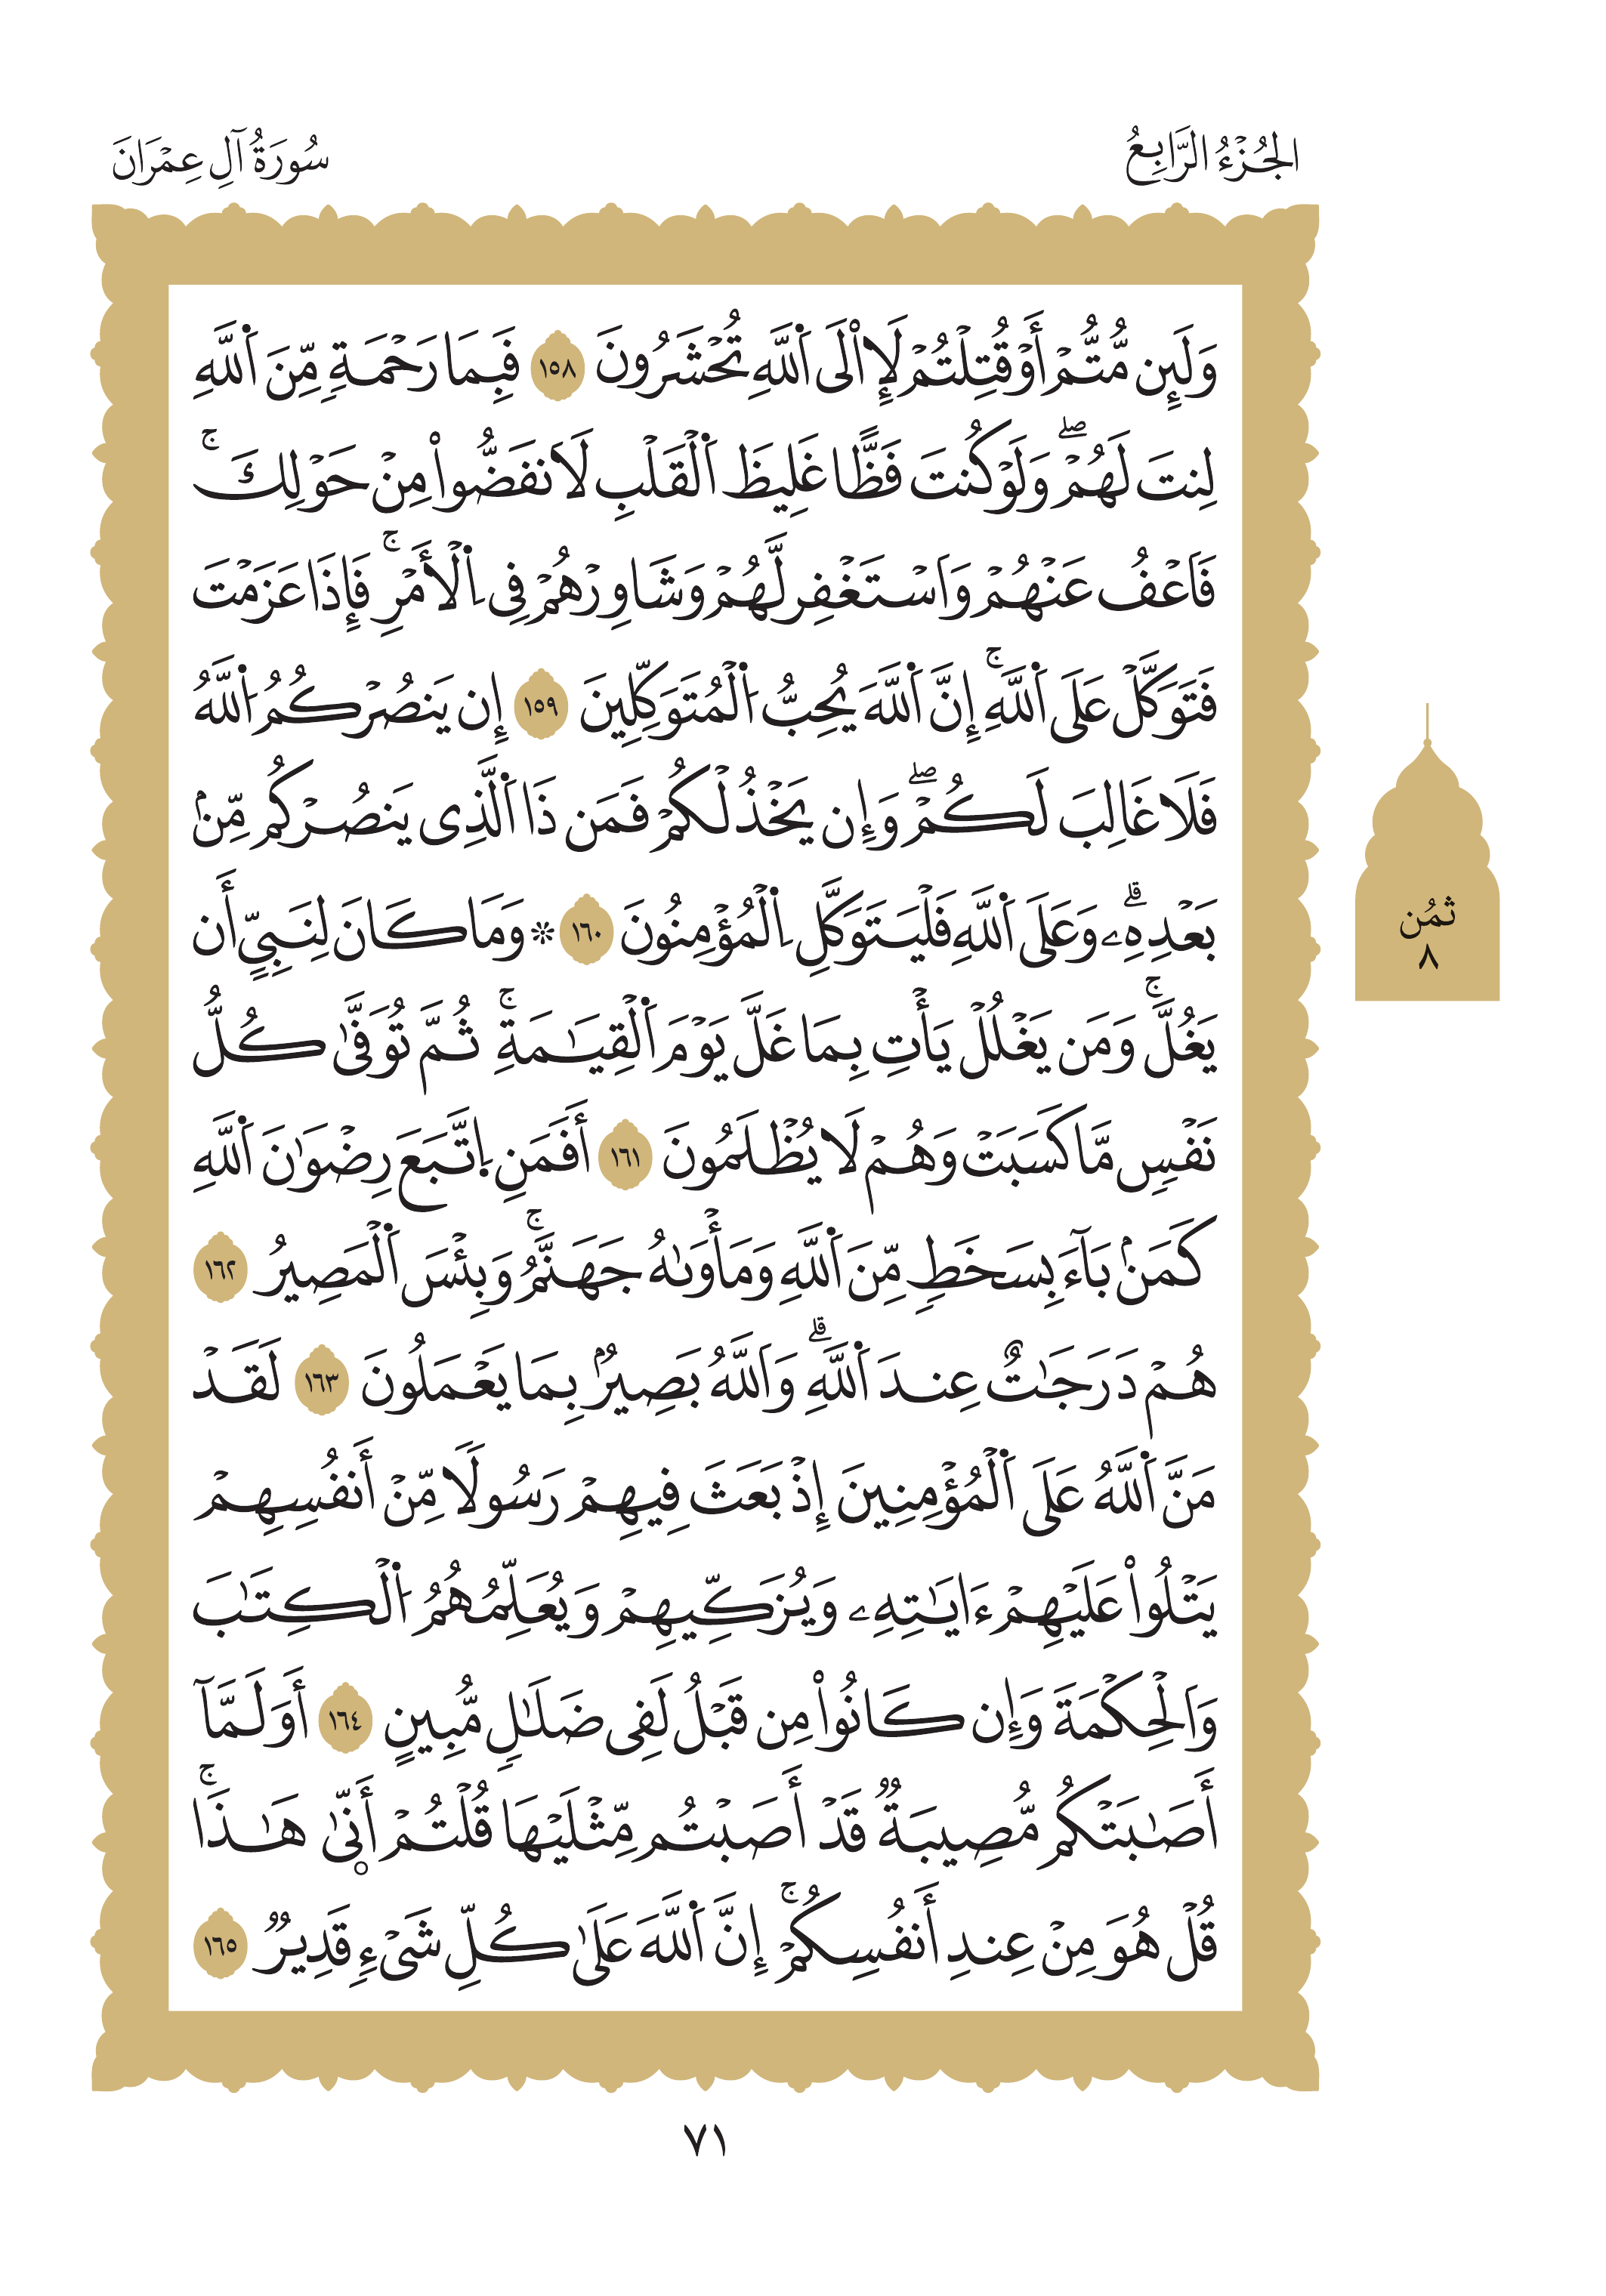 الجُزْءُ الرَّابِعُ
سُورَةُ آلِ عِمْرَانَ
وَلَئِن مُّتُّمْ أَوْ قُتِلْتُمْ لَإِا۟لَى اَ۬للَّهِ تُحْشَرُونَ ١٥٨ فَبِمَا رَحْمَةٖ مِّنَ اَ۬للَّهِ
لِنتَ لَهُمْۖ وَلَوْ كُنتَ فَظًّا غَلِيظَ اَ۬لْقَلْبِ لَانفَضُّوا۟ مِنْ حَوْلِكَۚ
فَاعْفُ عَنْهُمْ وَاسْتَغْفِر لَّهُمْ وَشَاوِرْهُمْ فِى اِ۬لْأَمْرِۚ فَإِذَا عَزَمْتَ
فَتَوَكَّلْ عَلَى اَ۬للَّهِۚ إِنَّ اَ۬للَّهَ يُحِبُّ اُ۬لْمُتَوَكِّلِينَ ١٥٩ إِن يَنصُرْكُمُ اُ۬للَّهُ
فَلَا غَالِبَ لَكُمْۖ وَإِن يَخْذُلْكُمْ فَمَن ذَا اَ۬لَّذِى يَنصُرْكُم مِّنۢ
بَعْدِهِۦۗ وَعَلَى اَ۬للَّهِ فَلْيَتَوَكَّلِ اِ۬لْمُؤْمِنُونَ ١٦٠ ۞ وَمَا كَانَ لِنَبِيٍّ أَن
يَغُلَّۚ وَمَن يَغْلُلْ يَأْتِ بِمَا غَلَّ يَوْمَ اَ۬لْقِيَٰمَةِۚ ثُمَّ تُوَفَّىٰ كُلُّ
نَفْسٖ مَّا كَسَبَتْ وَهُمْ لَا يُظْلَمُونَ ١٦١ أَفَمَنِ اِ۪تَّبَعَ رِضْوَٰنَ اَ۬للَّهِ
كَمَنۢ بَآءَ بِسَخَطٖ مِّنَ اَ۬للَّهِ وَمَأْوَىٰهُ جَهَنَّمُۚ وَبِئْسَ اَ۬لْمَصِيرُ ١٦٢
هُمْ دَرَجَٰتٌ عِندَ اَ۬للَّهِۗ وَاَ۬للَّهُ بَصِيرُۢ بِمَا يَعْمَلُونَ ١٦٣ لَقَدْ
مَنَّ اَ۬للَّهُ عَلَى اَ۬لْمُؤْمِنِينَ إِذْ بَعَثَ فِيهِمْ رَسُولٗا مِّنْ أَنفُسِهِمْ
يَتْلُوا۟ عَلَيْهِمْ ءَايَٰتِهِۦ وَيُزَكِّيهِمْ وَيُعَلِّمُهُمُ اُ۬لْكِتَٰبَ
وَالْحِكْمَةَ وَإِن كَانُوا۟ مِن قَبْلُ لَفِى ضَلَٰلٖ مُّبِينٍ ١٦٤ أَوَلَمَّآ
أَصَٰبَتْكُم مُّصِيبَةٞ قَدْ أَصَبْتُم مِّثْلَيْهَا قُلْتُمْ أَنّ۪ىٰ هَٰذَاۚ
قُلْ هُوَ مِنْ عِندِ أَنفُسِكُمْۚ إِنَّ اَ۬للَّهَ عَلَىٰ كُلِّ شَىْءٖ قَدِيرٞ ١٦٥
ثمُن
٨
٧١